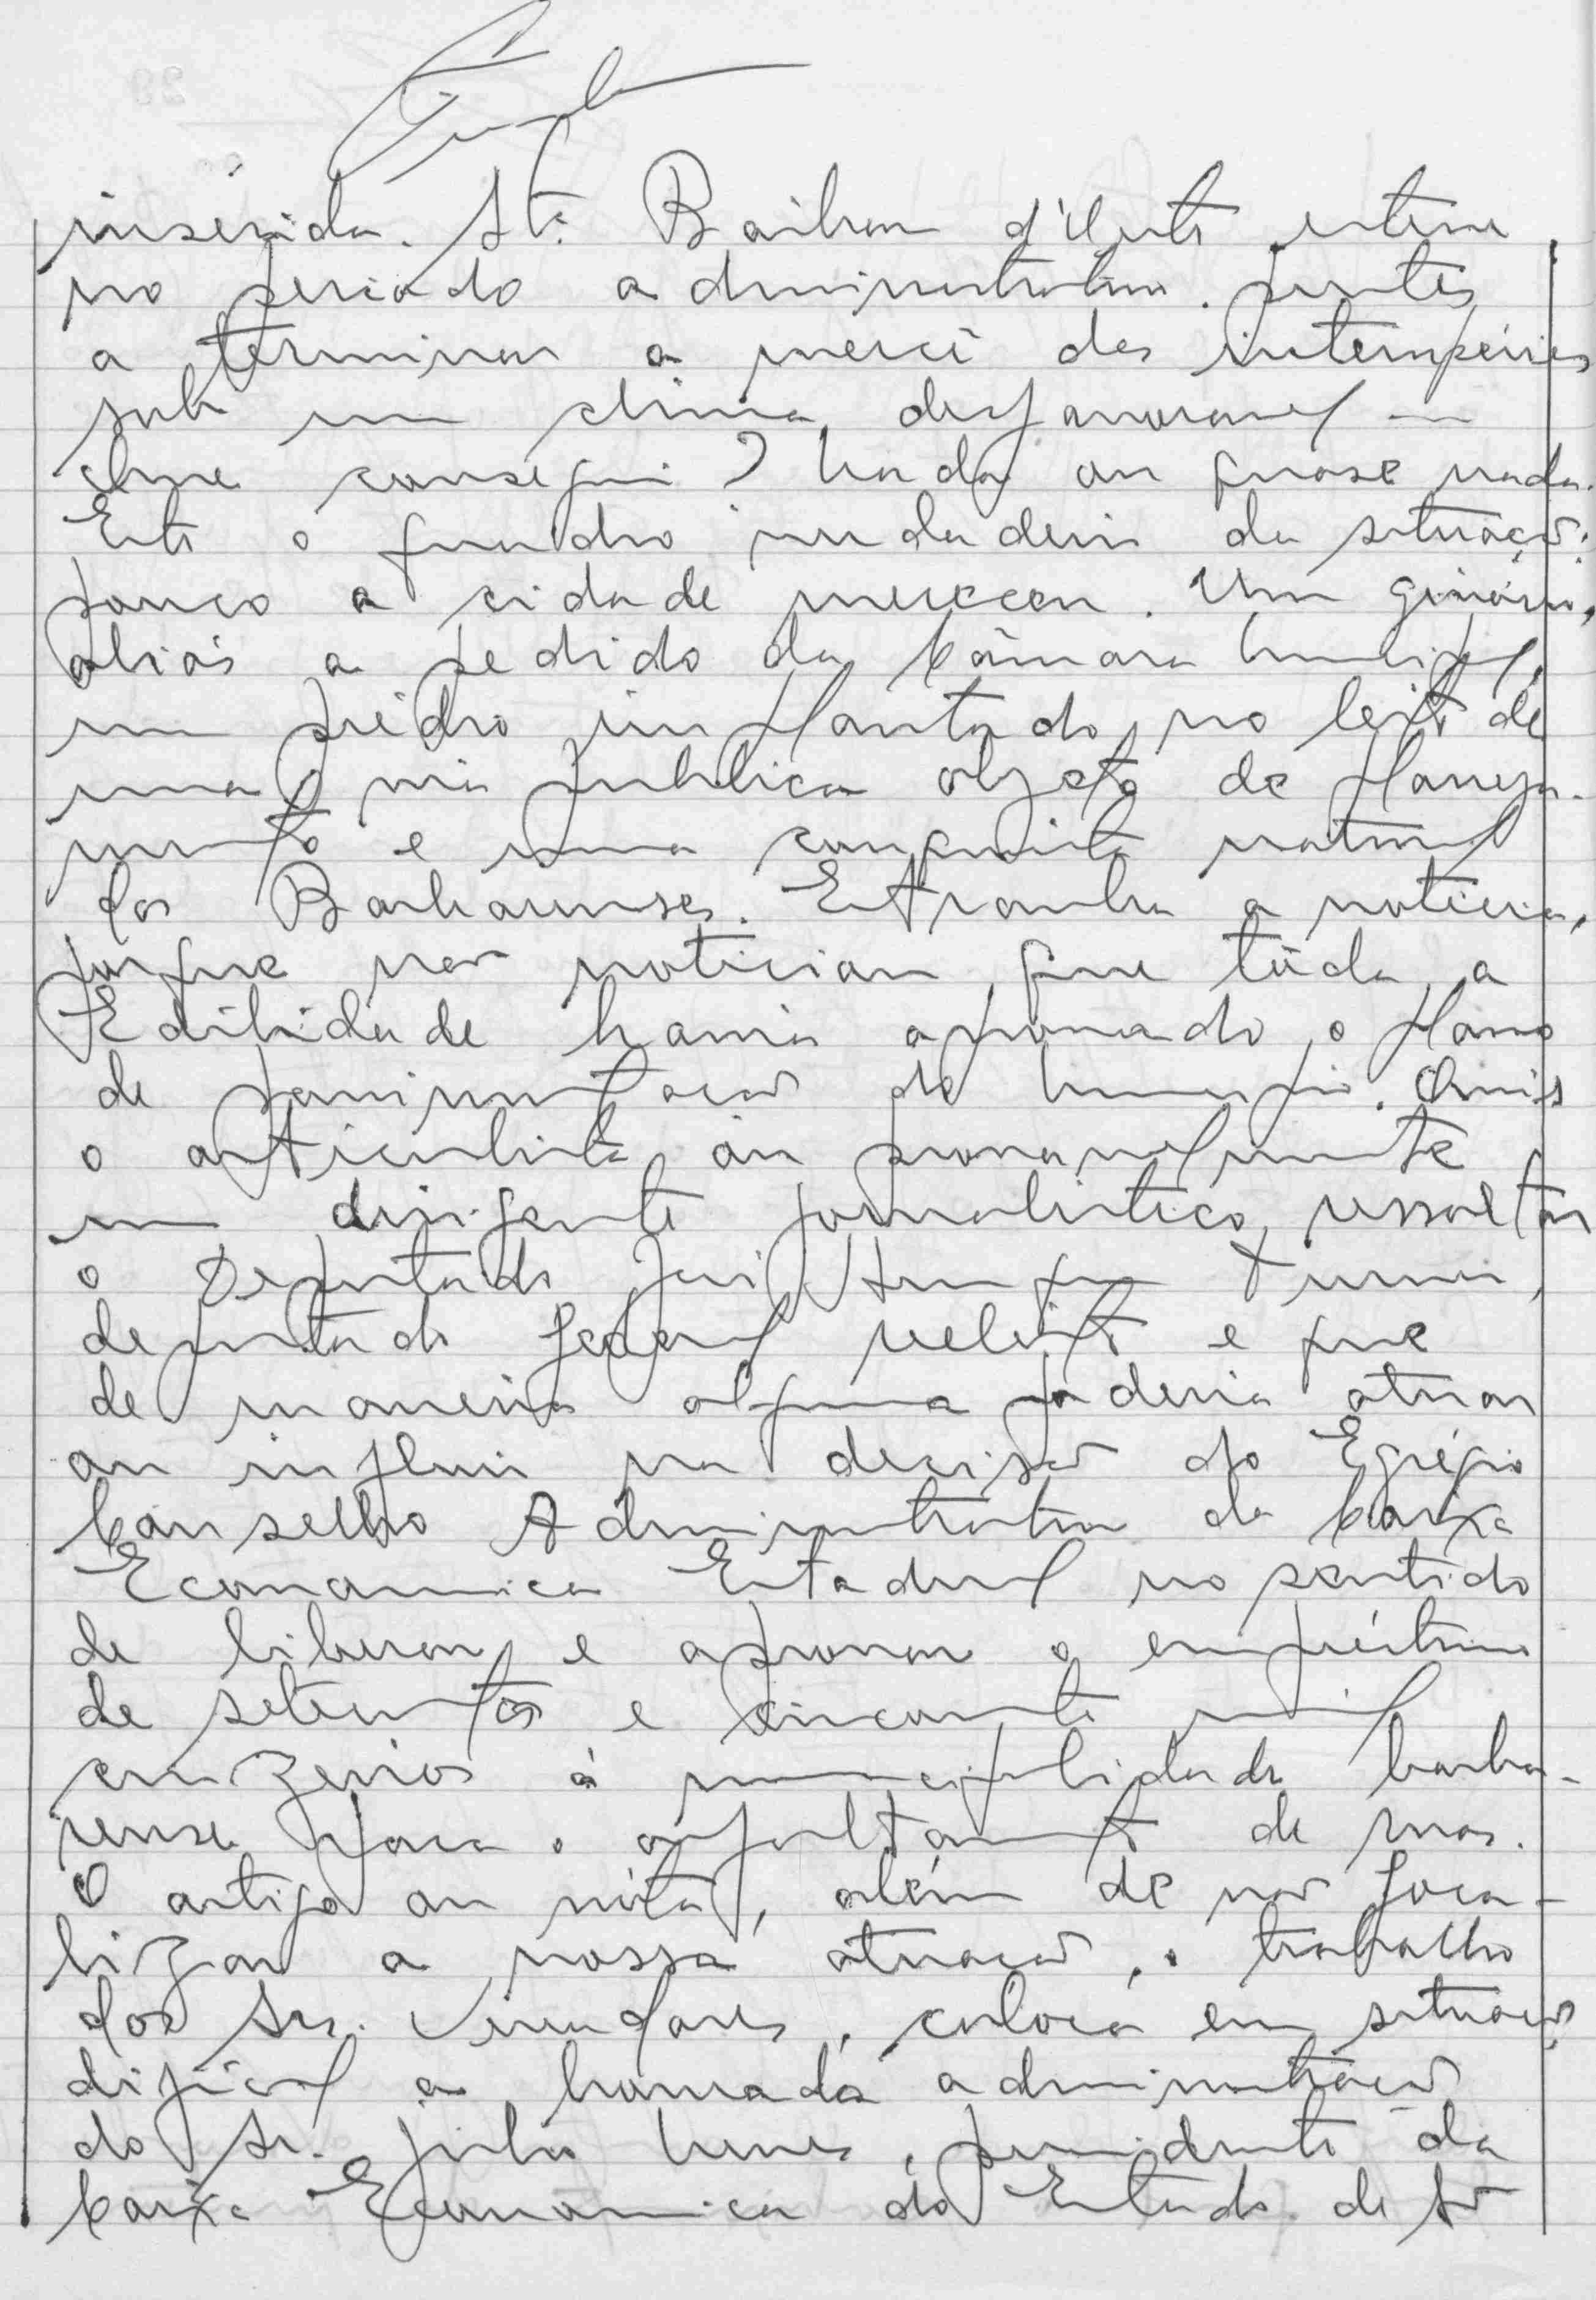 inserida. Sta. Barbara d'Oeste esteve
no periodo administrativo. prestes
a terminar a mercê das intempéries
sob um clima desfavoravel —
Que consegui? Nada ou quase nada.
Este o quadro verdadeiro da situação:
pouco a cidade mereceu. Um ginásio,
aliás a pedido da Câmara Municipal,
um prédio implantado no leito de
uma via publica objeto de planeja-
mento e uma conquista natural
dos Barbarenses. Estranha a noticia,
porque nos noticiam que tôda a
Edilidade havia aprovado o plano
de pavimentação do Municipio. Quis
o articulista ou provavelmente
um dirigente jornalistico, ressaltar
o Deputado
deputado federal eleito e que
de maneira alguma poderia atuar
ou influir na decisão do Egrégio
Conselho Administrativo da Caixa
Economica Estadual no sentido
de liberar e aprovar o empréstimo
de setecentos e cincoenta mil
cruzeiros á municipalidade barba-
rense para o asfaltamento de ruas.
O artigo ou nóta, além de não foca-
lizar a nossa atuação, o trabalho
dos Srs. Vereadores, coloca em situação
dificil a honrada administração
do Sr. Julio presidente da
Caixa Economica do Estado de São